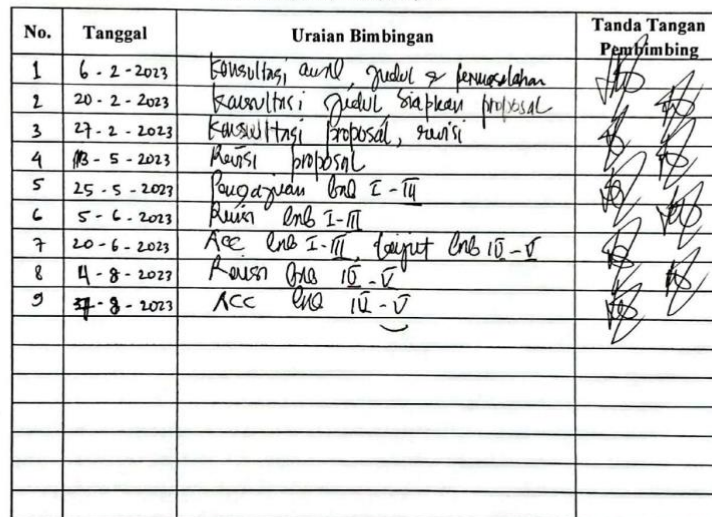 No. Tanggal Uraian Bimbingan Tanda Tangan Pembimbing
1 6 - 2 - 2023 Konsultasi awal, Judul & permasalahan
2 20 - 2 - 2023 Konsultasi Judul siapkan proposal
3 27 - 2 - 2023 Konsultasi proposal, revisi
4 13 - 5 - 2023 Revisi proposal
5 25 - 5 - 2023 Pengajuan bab I - III
6 5 - 6 - 2023 Revisi bab I - III
7 20 - 6 - 2023 Acc bab I - III, lanjut bab IV - V
8 4 - 8 - 2023 Revisi bab IV - V
9 - 8 - 2023 ACC bab IV - V